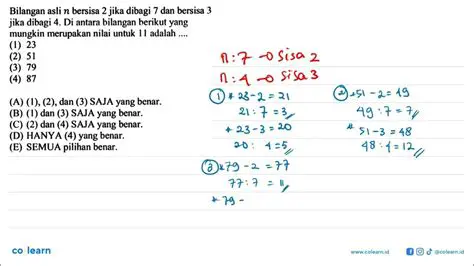 Bilangan asli n bersisa 2 jika dibagi 7 dan bersisa 3
jika dibagi 4. Di antara bilangan berikut yang
mungkin merupakan nilai untuk 11 adalah ....
(1) 23
(2) 51
(3) 79
(4) 87
(A) (1), (2), dan (3) SAJA yang benar.
(B) (1) dan (3) SAJA yang benar.
(C) (2) dan (4) SAJA yang benar.
(D) HANYA (4) yang benar.
(E) SEMUA pilihan benar.
n : 7 → sisa 2
n : 4 → sisa 3
① * 23 - 2 = 21
21 : 7 = 3
* 23 - 3 = 20
20 : 4 = 5
② * 51 - 2 = 49
49 : 7 = 7
* 51 - 3 = 48
48 : 4 = 12
③ * 79 - 2 = 77
77 : 7 = 11
* 79 -
co learn
www.colearn.id
@colearn.id